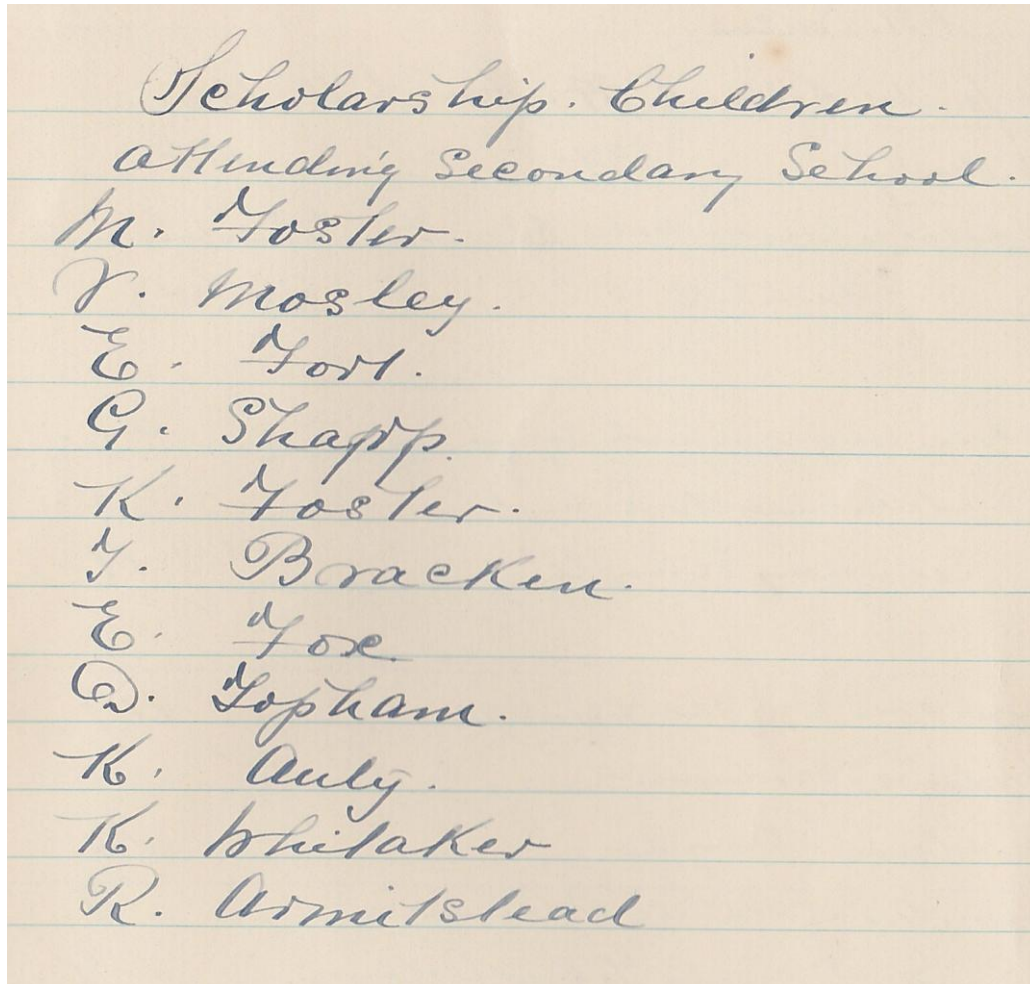 Scholarship. Children.
attending Secondary School.
M. Foster.
V. Mosley.
E. Fort.
G. Shapp.
K. Foster.
J. Bracken.
E. Fox.
D. Topham.
K. Auty.
K. Whitaker
R. Armitstead